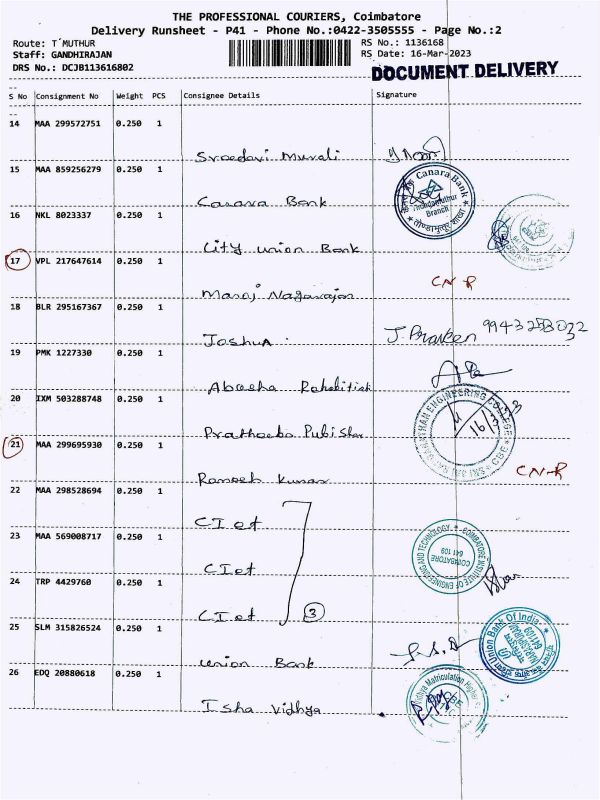 THE PROFESSIONAL COURIERS, Coimbatore
Delivery Runsheet - P41 - Phone No.:0422-3505555 - Page No.:2
Route: T`MUTHUR
RS No.: 1136168
Staff: GANDHIRAJAN
RS Date: 16-Mar-2023
DRS No.: DCJB113616802
DOCUMENT DELIVERY
S No Consignment No Weight PCS Consignee Details Signature
14 MAA 299572751 0.250 1
Sroedavi Murali
15 MAA 859256279 0.250 1
Canara Bank
Canara Bank
Thondamuthur
Branch
16 NKL 8023337 0.250 1
City union Bank
17 VPL 217647614 0.250 1
Manoj Nagarajan
CN-R
18 BLR 295167367 0.250 1
Joshua
J. Praveen 9943253032
19 PMK 1227330 0.250 1
20 IXM 503288748 0.250 1
ENGINEERING COLLEGE
16/3/23
21 MAA 299695930 0.250 1
Ramesh Kumar
CN-R
22 MAA 298528694 0.250 1
CIet
23 MAA 569008717 0.250 1
CIet
COIMBATORE INSTITUTE OF ENGINEERING AND TECHNOLOGY
COIMBATORE
641 109
24 TRP 4429760 0.250 1
CIet
3
25 SLM 315826524 0.250 1
union Bank
Union Bank Of India
641109
26 EDQ 20880618 0.250 1
Isha Vidhya
Vidhya Matriculation